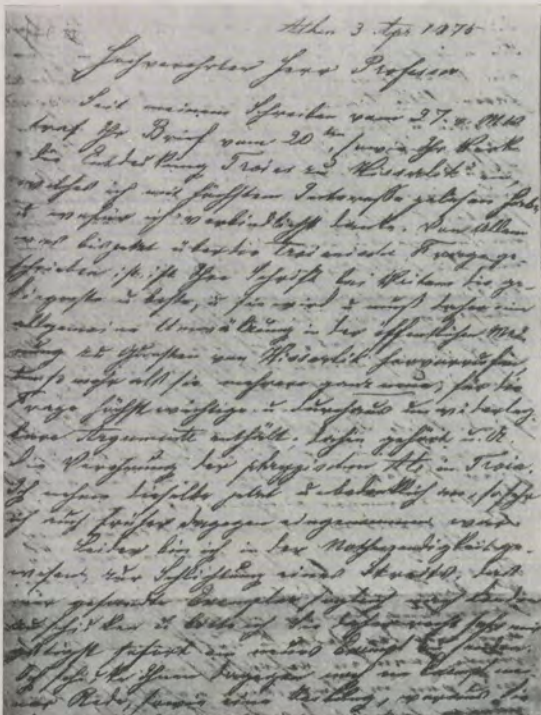 Athen 3 Apr 1875
Hochverehrter Herr Professor
Seit meinem Schreiben vom 27. v. Mts
traf Ihr Brief vom 20ten, sowie Ihr Werk
die Entdeckung Troias zu Hissarlik ein,
welches ich mit höchstem Interesse gelesen habe
u wofür ich verbindlichst danke. Von Allem
was bis jetzt über die Troianische Frage ge-
schrieben ist, ist Ihre Schrift bei Weitem die ge-
diegenste u beste, u sie wird u muß daher eine
allgemeine Umwälzung in der öffentlichen Mei-
nung zu Gunsten von Hissarlik hervorrufen,
umso mehr als sie mehrere ganz neue, für die
Frage höchst wichtige u durchaus unwiderleg-
bare Argumente enthält; dahin gehört u. A.
die Verehrung der phrygischen Ate in Troia.
Ich nehme dieselbe jetzt unbedenklich an, so sehr
ich auch früher dagegen eingenommen war
Leider bin ich in der Nothwendigkeit ge-
wesen, zur Schlichtung eines Streits, das
mir gesandte Exemplar sogleich nach
zu schicken u bitte ich Sie
sofort ein neues
Ich schicke Ihnen dagegen
Rede, sowie eine Zeitung, woraus Sie